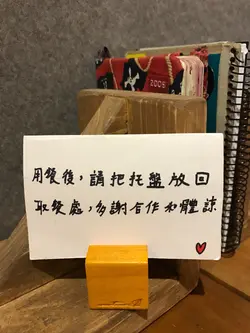 2005
用餐後，請把托盤放回
取餐處，多謝合作和體諒